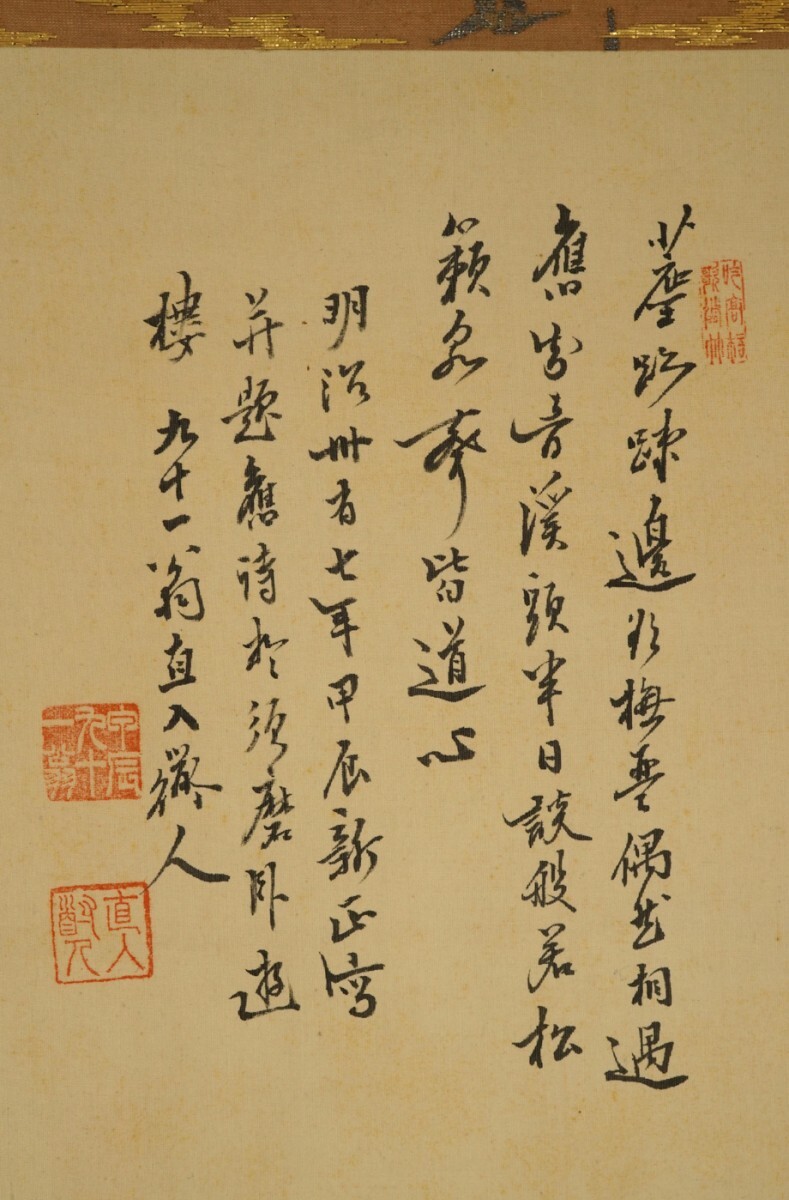 塵跡踈邊欲撫琴偶然相遇
舊知音溪頭半日談般若松
籟泉聲皆道心
明治卅有七年甲辰新正寫
并題舊詩於須磨臥遊
樓 九十一翁直入人
直入